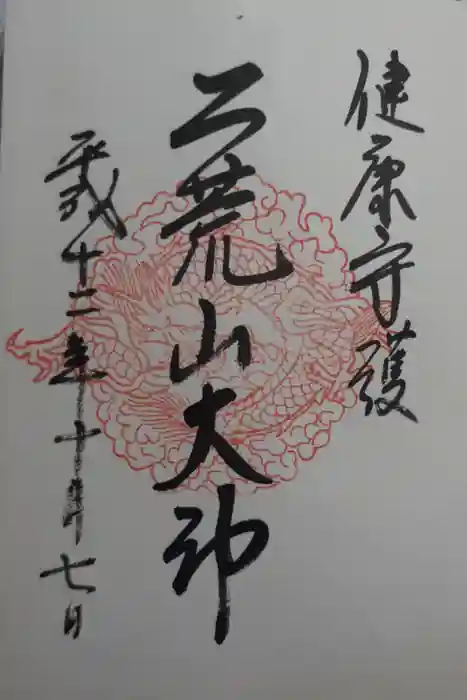 健康守護
二荒山大神
平成十二年十月七日